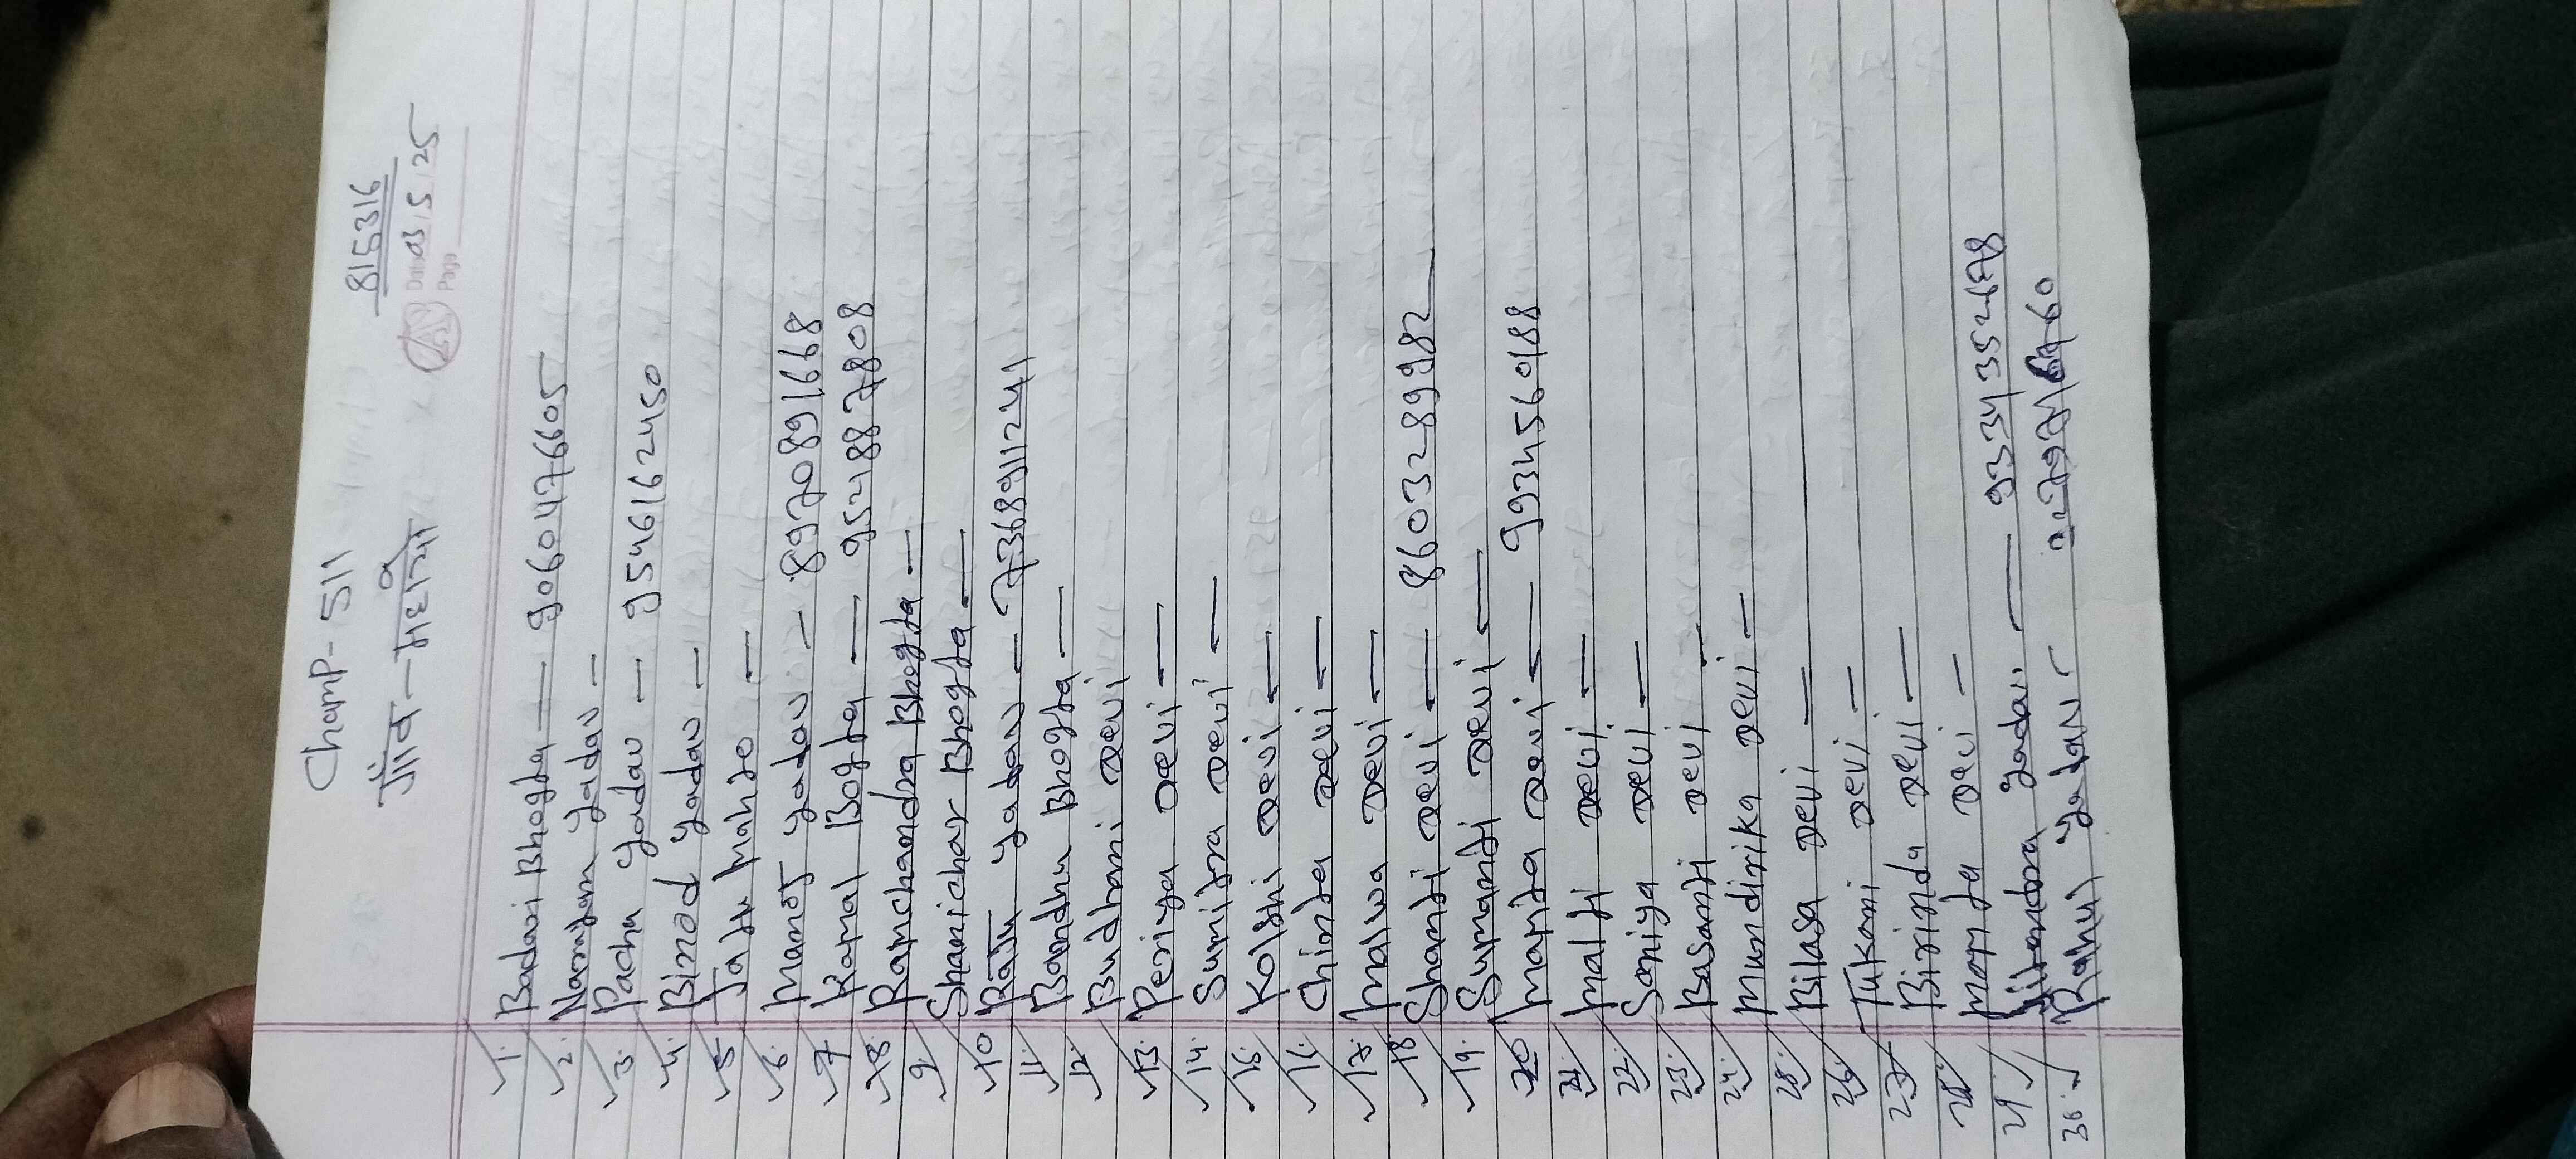 815316
Champ- 511
Date 03/5/25
गाँव - महोगो
Page
1. Badari Bhogta — 9060476605
2. Narayan Yadav —
3. Pacha Yadav — 9546162450
4. Binod Yadav —
5. Jatu Mahto —
6. Manoj Yadav — 8970891668
7 Kamal Bogta — 9521887808
8. Ramchandra Bhogta —
9. Shanichar Bhogta —
10 Raju Yadav — 7368911241
11. Bandhu Bhogta —
12. Budhani Devi
13. Periya Devi —
14. Sumitra Devi —
15. Kolshi Devi —
16. Chinta Devi —
17. Malwa Devi —
18 Shanti Devi — 8603289982
19. Sumanti Devi —
20 Manita Devi — 9934560188
21. Malti Devi —
22. Soniya Devi —
23. Basanti Devi —
24. Mundirika Devi —
25. Bilasa Devi —
26. Tukani Devi —
27 Birinda Devi —
28. Mamta Devi —
29. Jitendra Yadav — 9334352678
30. Rahul Yadav -